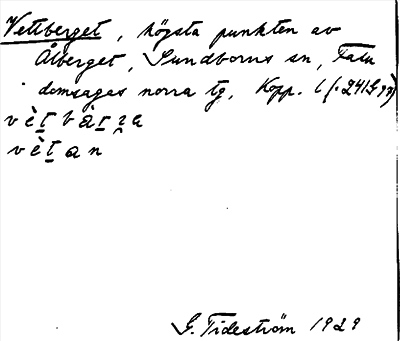 Vettberget, högsta punkten av
Ålberget, Sundborns sn, Falu
domsagas norra tg, Kopp. l
vètbàrza
vètan
G. Tideström 1929